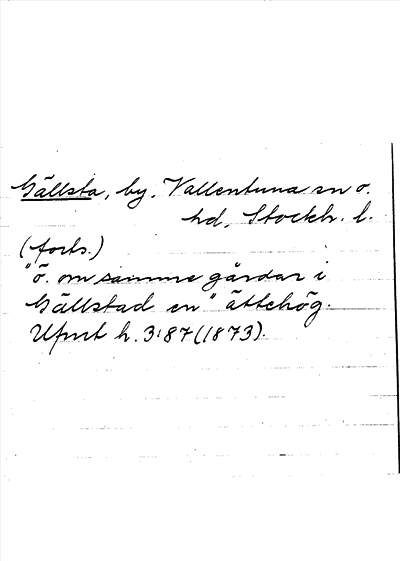 Gällsta, by, Vallentuna sn o.
hd, Stockh. l.
(forts.)
"ö. om samme gårdar i
Gällstad en" ättehög.
Ufmt h. 3:87 (1873).